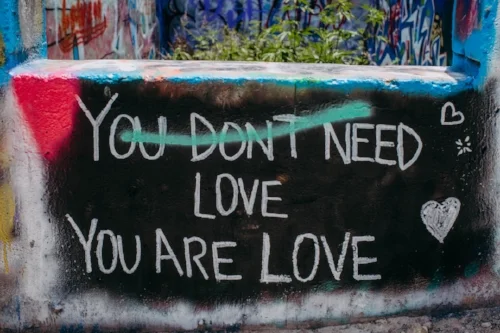 YOU DON'T NEED
LOVE
YOU ARE LOVE